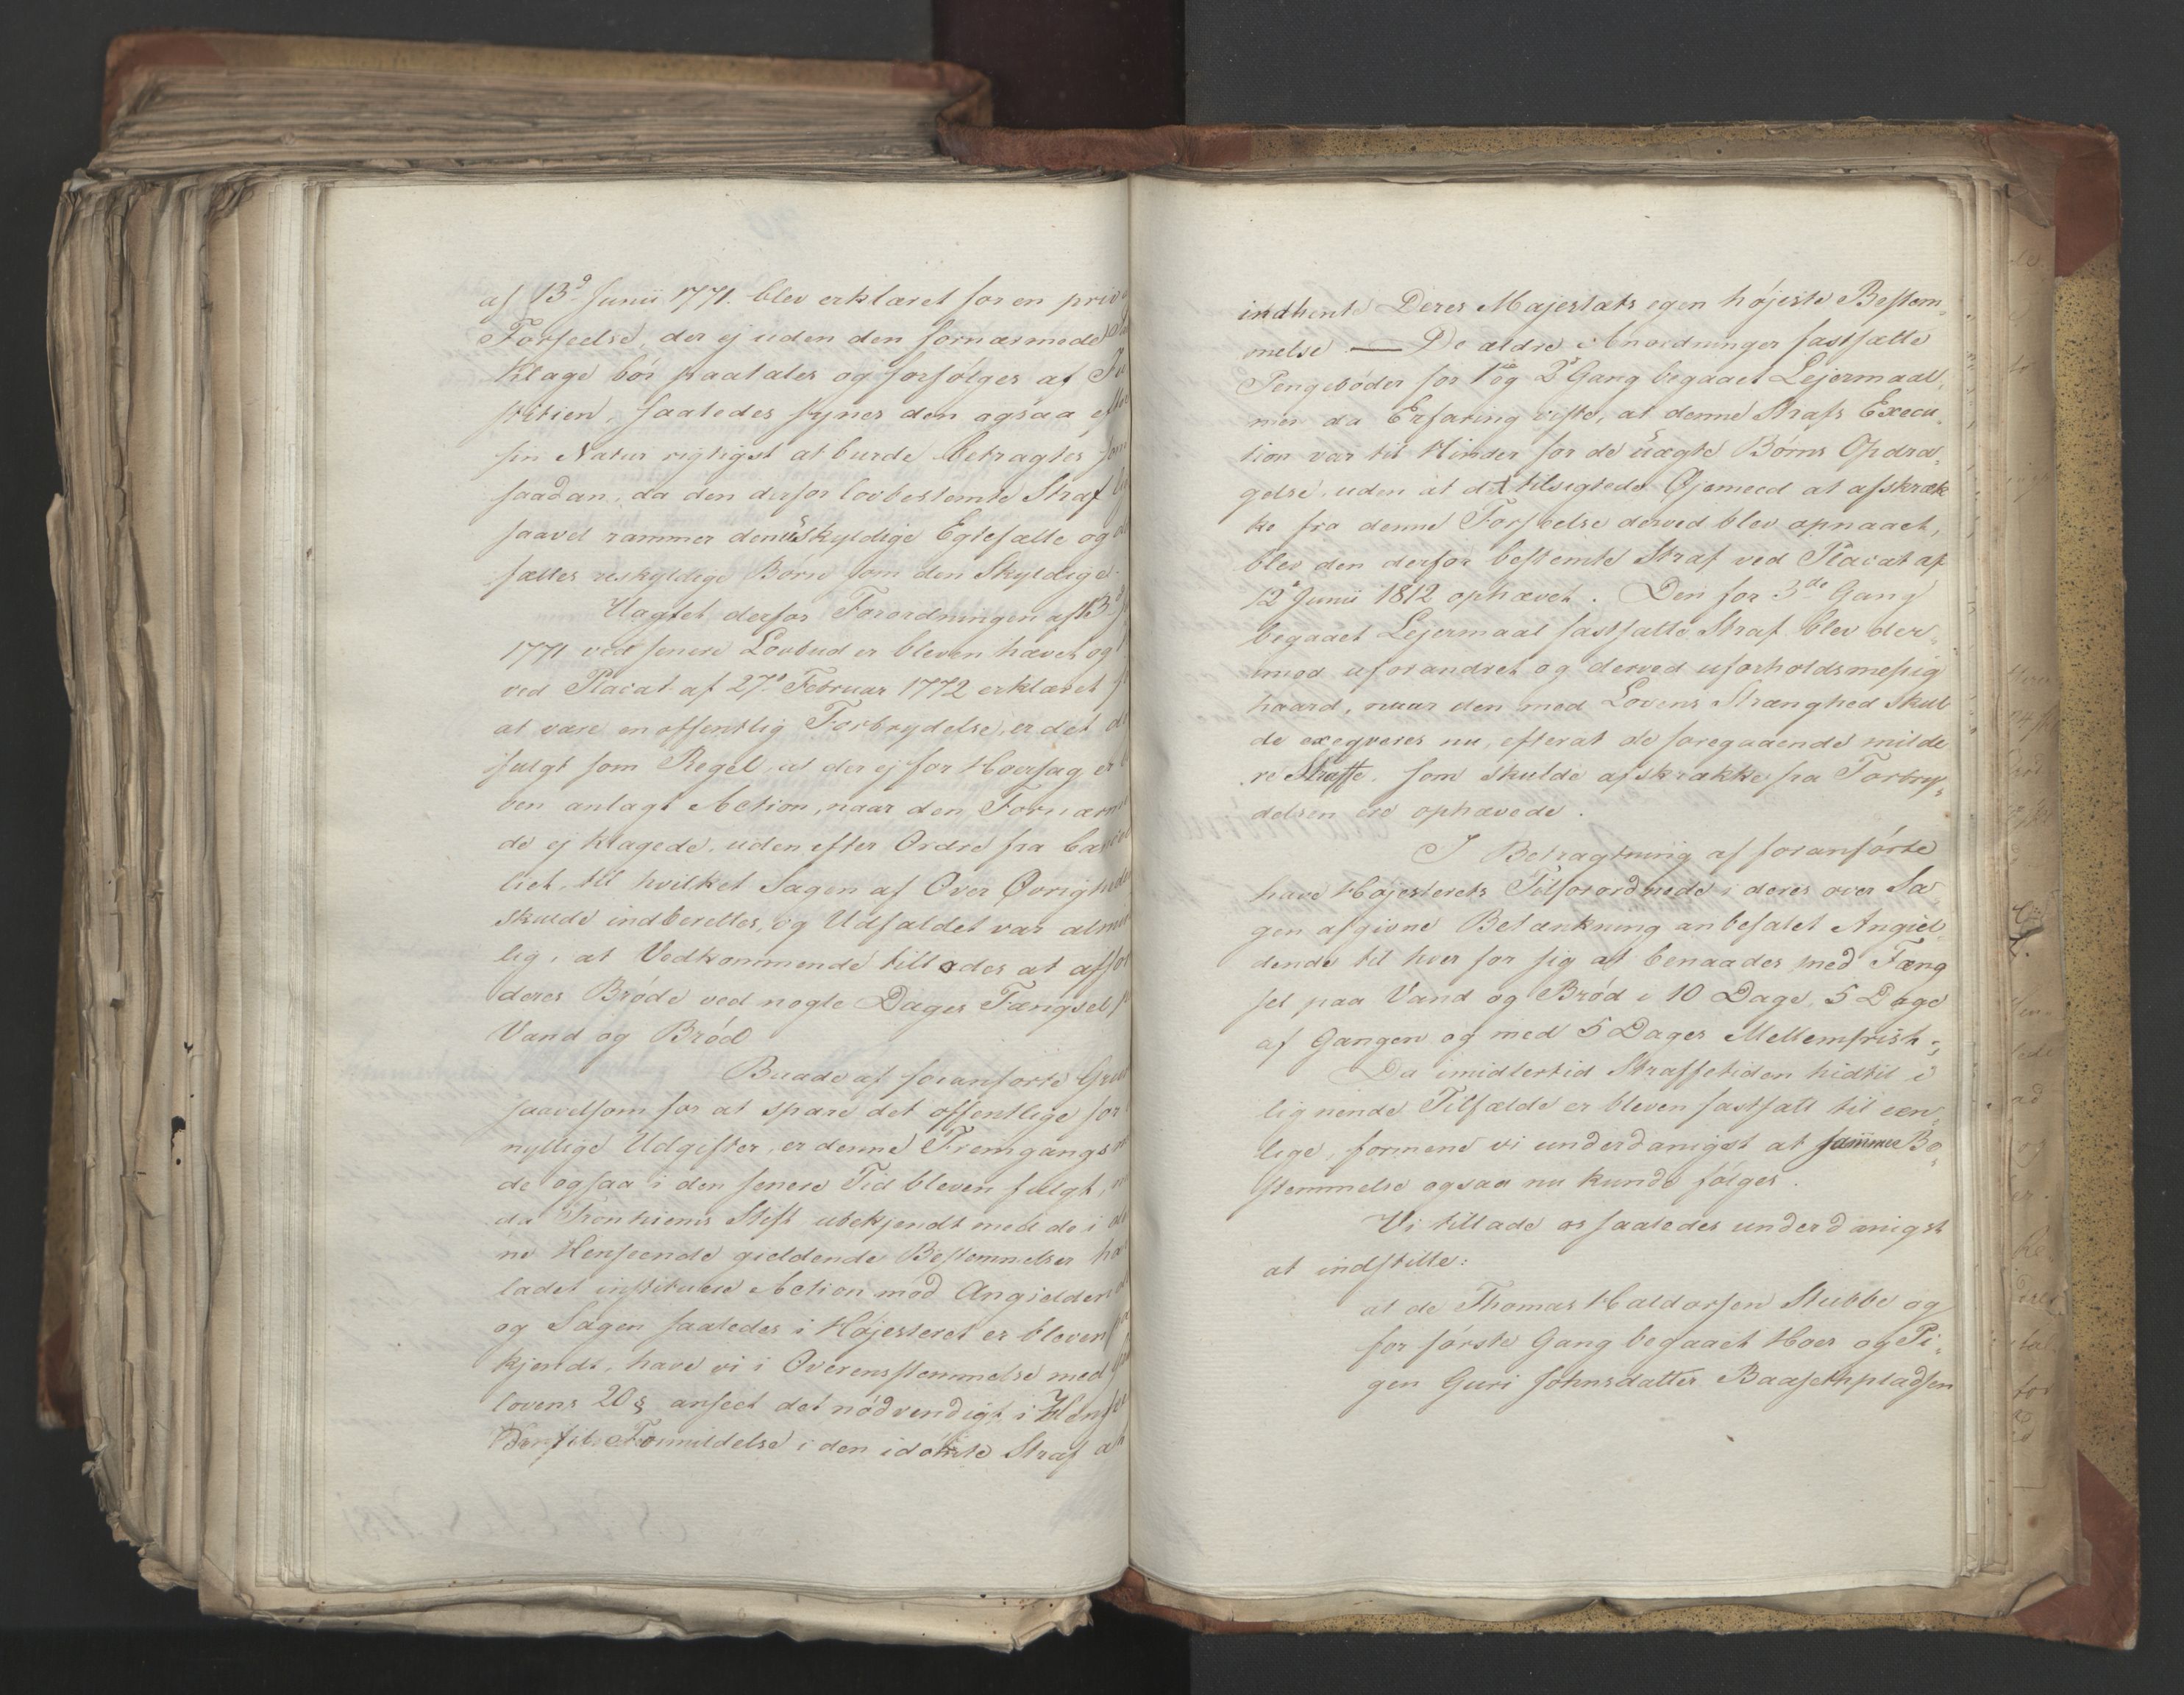 af 13de Junii 1771. blev erklæret for en priv
Forseelse, der ej uden den fornærmede
Klage bör paatales og forfölges af Ju
stitien, saaledes synes den ogsaa efter
sin Natur rigtigst at burde betragtes som
saadan, da den derfor lovbestemte Straf
saavel rammer den uskyldige Egtefælle og
fælles uskyldige Börn som den Skyldige.
Uagtet derfor Forordningen af 13de
1771 ved senere Lovbud er bleven hævet og
ved Placat af 27de Februar 1772 erklæret
at være en offentlig Forbrydelse, er det
fulgt som Regel, at der ej for Hoersag er
ven anlagt Action, naar den Fornærm
de ej klagede, uden efter Ordre fra Cancel
liet, til hvilket Sagen af Over Övrighede
skulde indberettes, og Udfaldet var almi
lig, at Vedkommende tillodes at affso
deres Bröde ved nogle Dages Fængsel p
Vand og Bröd
Baade af foranförte Grun
saavelsom for at spare det offentlige for
nyttige Udgifter, er denne Fremgangsm
de ogsaa i den senere Tid bleven fulgt, m
da Tronhiems Stift ubekjendt med de i
ne Henseende gieldende Bestemmelser ha
ladet instituere Action mod Angielden
og Sagen saaledes i Höjesteret er bleven
kjendt, have vi i Overensstemmelse med
lovens 20 § anseet det nödvendigt, i Hens
til Formildelse i den idömte Straf at
indhente Deres Majestæts egen höjeste Bestem-
melse — De ældre Anordninger fastsætte
Pengeböder for 1ste og 2den Gang begaaet Lejermaal,
men da Erfaring viste, at denne Strafs Execu-
tion var til Hinder for de uægte Börns Opdra-
gelse, uden at det tilsigtede Öjemeed at afskræk
ke fra denne Forseelse derved blev opnaaet,
blev den derfor bestemte Straf ved Placat af
12te Junii 1812 ophævet. Den for 3de Gang
begaaet Lejermaal fastsatte Straf blev der-
imod uforandret og derved uforholdsmæssig
haard, naar den med Lovens Strænghed skul
de exeqveres nu, efterat de foregaaende milde
re Straffe, som skulde afskrække fra Forbry-
delsen ere ophævede.
I Betragtning af foranförte
have Höjesterets Tilforordnede i deres over Sa-
gen afgivne Betænkning anbefalet Angiel-
dende til hver for sig at benaades med Fæng
sel paa Vand og Bröd i 10 Dage, 5 Dage
af Gangen og med 5 Dages Mellemfrist;
Da imidlertid Straffetiden hidtil i
lignende Tilfælde er bleven fastsatt til een-
lige, formene vi underdanigst at samme Be-
stemmelse ogsaa nu kunde fölges.
Vi tillade os saaledes underdanigst
at indstille:
at de Thomas Haldorsen Stubbe og
for förste Gang begaaet Hoer og Pi-
gen Guri Johnsdatter Baasethpladsen